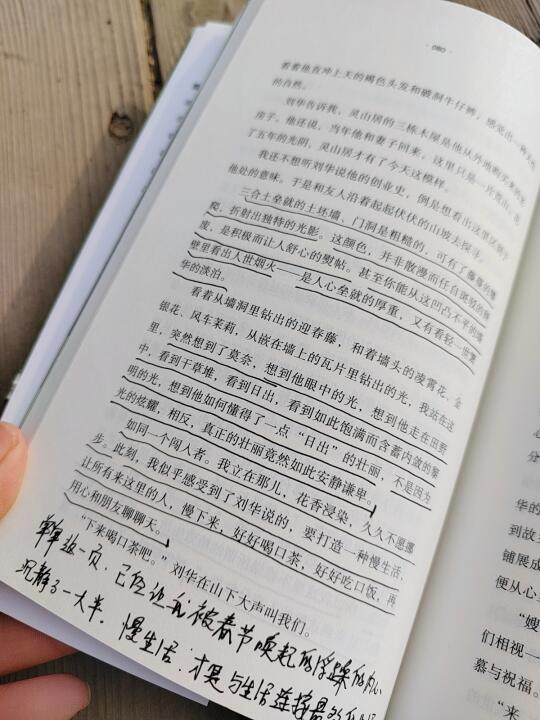 · 080 ·
看着他直冲上天的褐色头发和破洞牛仔裤，感觉出一种天
的自然。
刘华告诉我，灵山居的三栋木屋是他从外地购买来的老
房子。他还说，当年他和妻子回来，这里只是一片荒山，花
了五年的光阴，灵山居才有了今天这模样。
我还不想听刘华说他的创业史，倒是想看出这里区别于
他处的意味。于是和友人沿着起起伏伏的山坡去探寻。
三合土垒就的土坯墙、门洞是粗糙的，可有了藤蔓的攀
爬，折射出独特的光影。这颜色，并非散漫而任自斑驳的颓
废，是积极而让人舒心的熨帖。甚至你能从这凹凸不平的墙
壁里看出人世烟火——是人心垒就的厚重，又有看轻一世繁
华的淡泊。
看着从墙洞里钻出的迎春藤，和着墙头的凌霄花、金
银花、风车茉莉，从嵌在墙上的瓦片里钻出的光，我站在这
里，突然想到了莫奈，想到他眼中的光，想到他走在田野
中，看到干草堆，看到日出，看到如此饱满而含蓄内敛的黎
明的光，想到他如何懂得了一点“日出”的壮丽，不是因为
光的炫耀，相反，真正的壮丽竟然如此安静谦卑。
如同一个闯入者。我立在那儿，花香浸染，久久不愿挪
步。此刻，我似乎感受到了刘华说的，要打造一种慢生活，
让所有来这里的人，慢下来，好好喝口茶，好好吃口饭，再
用心和朋友聊聊天。
“下来喝口茶吧。”刘华在山下大声叫我们。
单单这一页，已经让我被春节唤起的浮躁的内心
沉静了一大半，
慢生活：才是与生活连接最
分
华的
到故
铺展成
便从心
“嫂
们相视一
慕与祝福。
“来